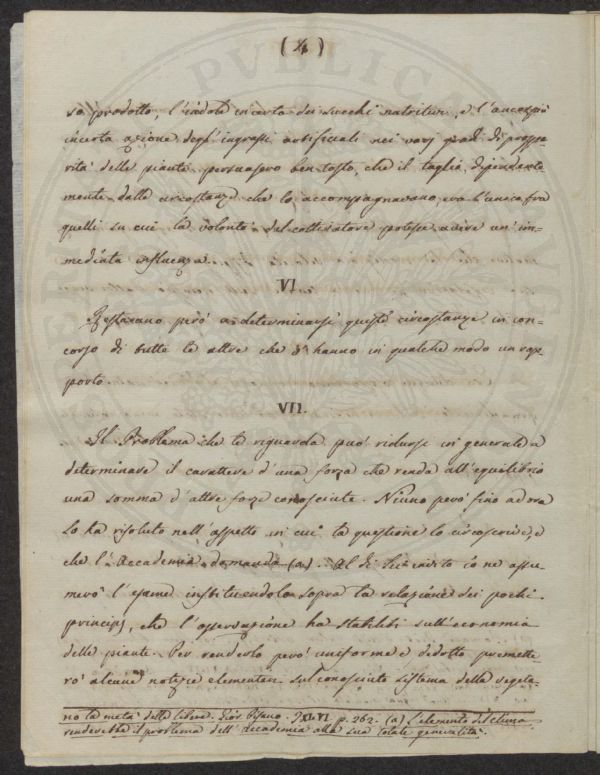 ( X )
so prodotto, l'indole incerta dei succhi nutritivi, e l'ancor più
incerta azione degl'ingrassi artificiali nei varj gradi di prospe-
rità delle piante persuasero ben tosto, che il taglio dipendente
mente dalle circostanze che lo accompagnavano, era l'unico fra
quelli su cui la volontà del coltivatore potesse avere un'im=
mediata influenza.
VI.
Restavano però a determinarsi queste circostanze in con=
corso di tutte le altre che v'hanno in qualche modo un rap
porto.
VII.
Il Problema che le riguarda può ridursi in generale a
determinare il carattere d'una forza che renda all'equilibrio
una somma d'altre forze conosciute. Niuno però fino ad ora
lo ha risoluto nell'aspetto in cui la questione lo circoscrive, e
che l'Accademia domanda (a). Al di lei invito io ne assu-
merò l'esame instituendolo sopra la relazione dei pochi
principj, che l'osservazione ha stabiliti sull'economia
delle piante. Per renderlo però uniforme e dedotto premette-
rò alcune notizie elementari sul conosciuto sistema della vegeta-
no la metà delle libere. Gior. Pisano. T. XLVI p. 262. (a) L'elemento del clima
renderebbe il problema dell'Accademia alla sua totale generalità.